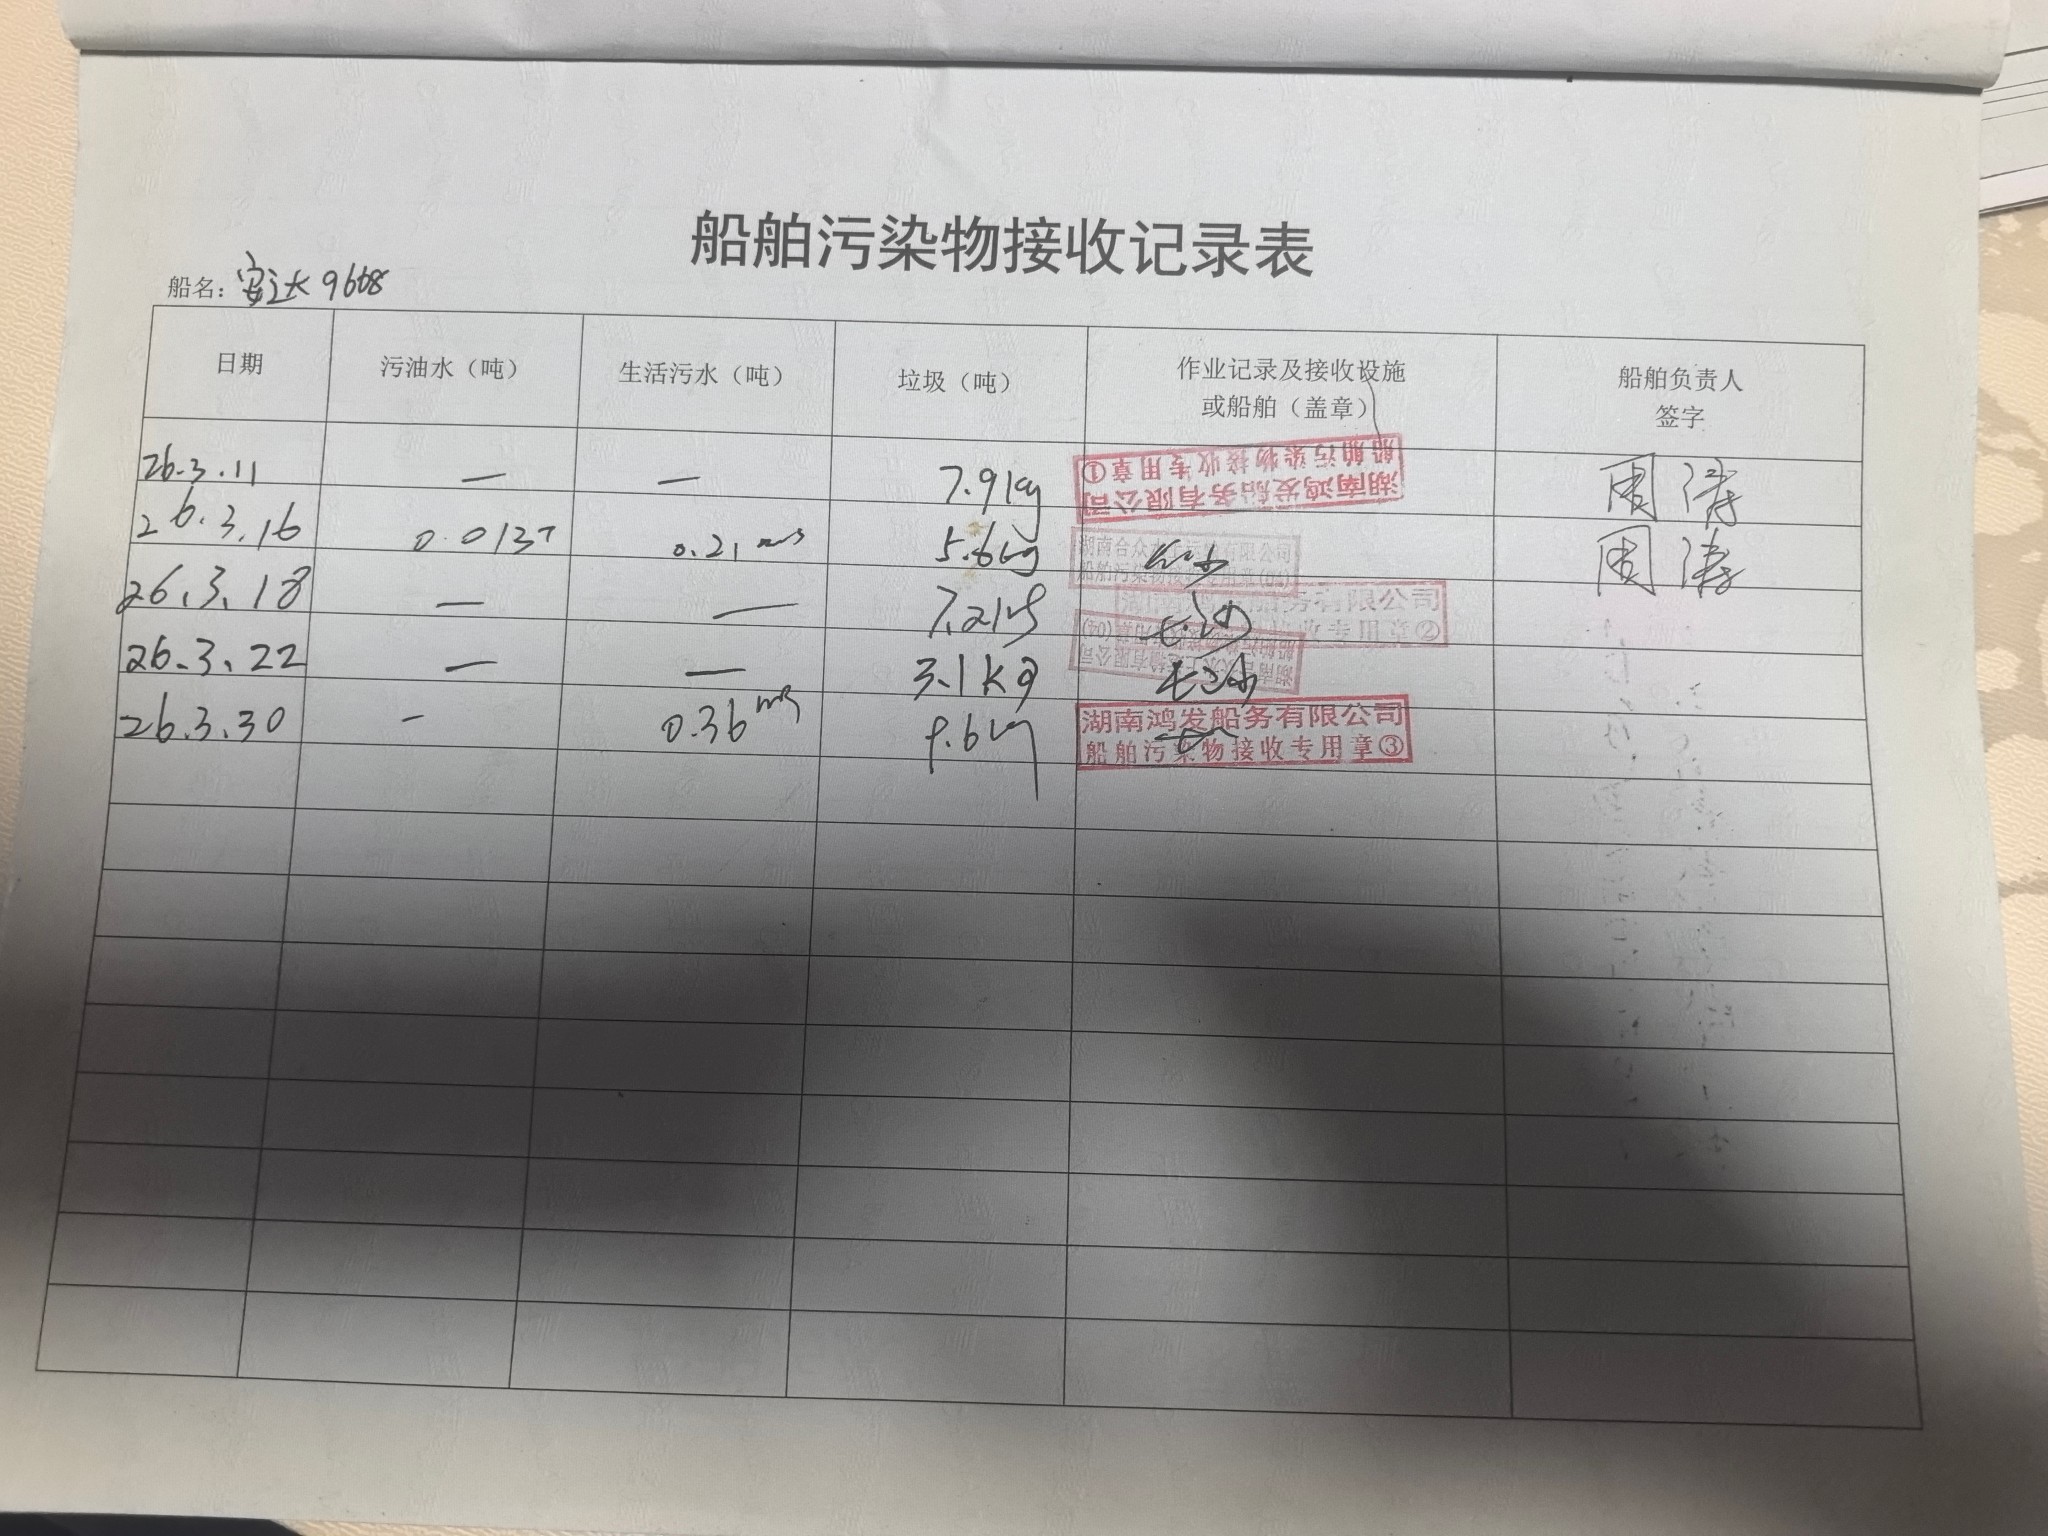 船舶污染物接收记录表
船名：安达 9668
日期 污油水（吨） 生活污水（吨） 垃圾（吨） 作业记录及接收设施或船舶（盖章） 船舶负责人签字
26.3.11 — — 7.9kg 湖南鸿发船务有限公司 船舶污染物接收专用章① 周涛
26.3.16 0.013T 0.21 m3 5.6kg 湖南合众水上运输有限公司 周涛
26.3.18 — — 7.2kg 船务有限公司 接收专用章②
26.3.22 — — 3.1kg
26.3.30 - 0.36 m3 9.6kg 湖南鸿发船务有限公司 船舶污染物接收专用章③